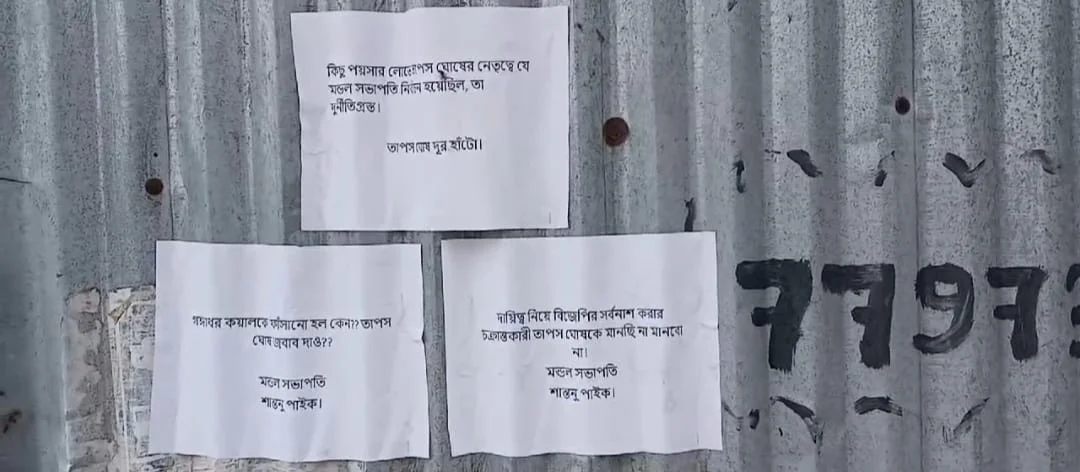 কিছু পয়সার লোভে তাপস ঘোষের নেতৃত্বে যে
মন্ডল সভাপতি নির্বাচন হয়েছিল, তা
দুর্নীতিগ্রস্ত।
তাপস ঘোষ দূর হাঁটো।।
গঙ্গাধর কয়ালকে ফাঁসানো হল কেন?? তাপস
ঘোষ জবাব দাও??
মন্ডল সভাপতি
শান্তনু পাইক।
দায়িত্ব নিয়ে বিজেপির সর্বনাশ করার
চক্রান্তকারী তাপস ঘোষকে মানছি না মানবো
না।
মন্ডল সভাপতি
শান্তনু পাইক।